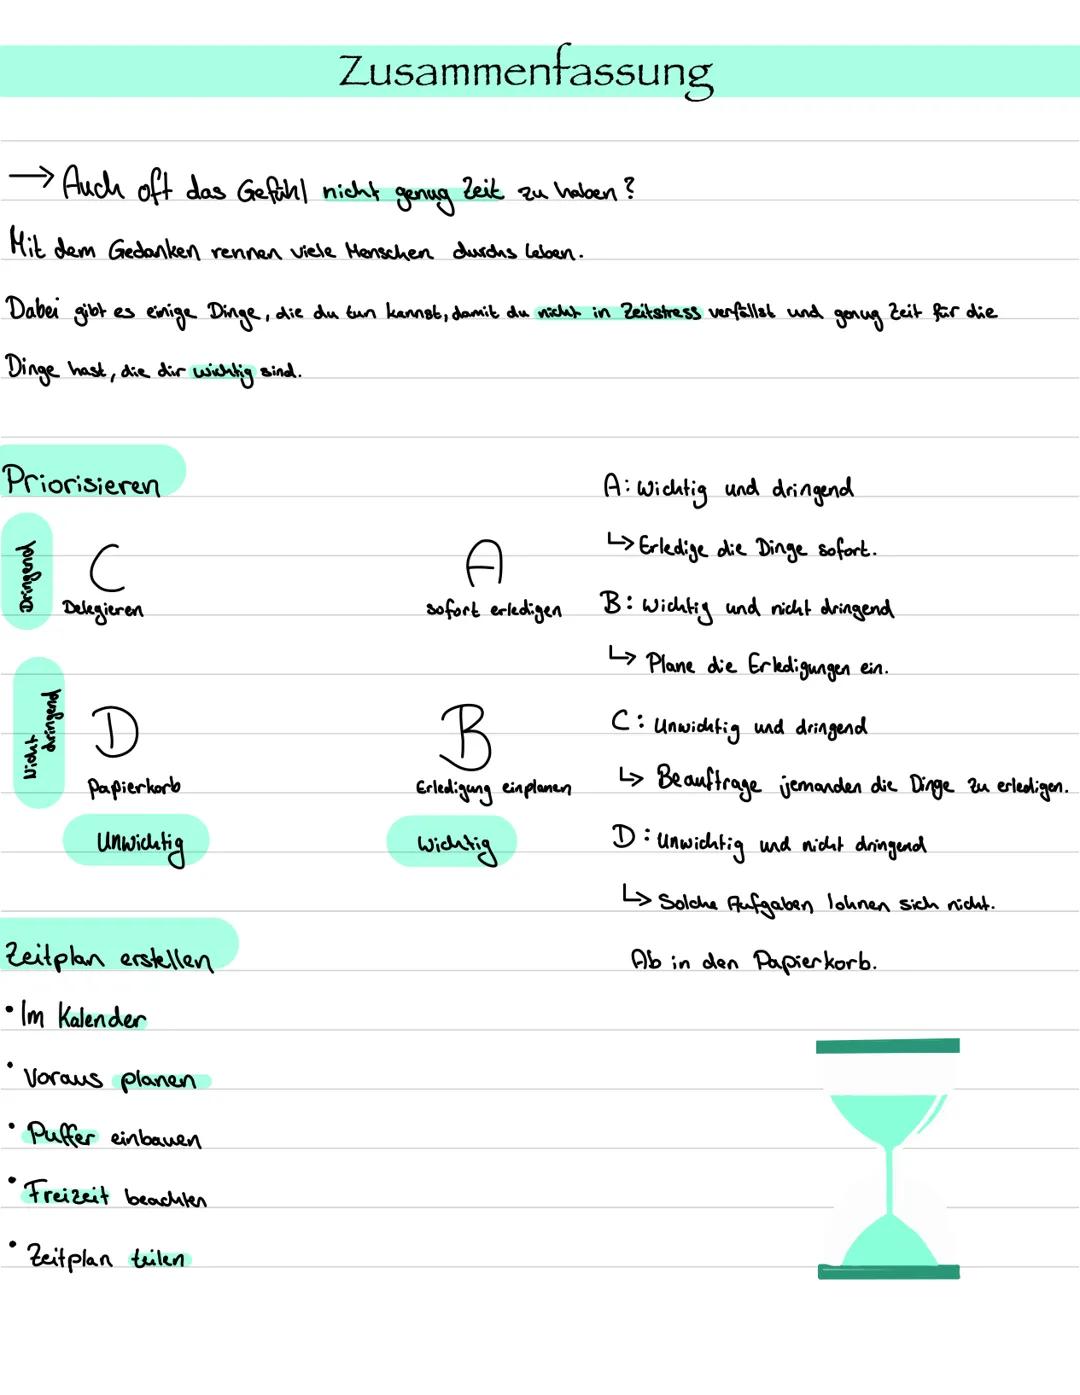 Zusammenfassung
→ Auch oft das Gefühl nicht genug Zeit zu haben?
Mit dem Gedanken rennen viele Menschen durchs Leben.
Dabei gibt es einige Dinge, die du tun kannst, damit du nicht in Zeitstress verfällst und genug Zeit für die
Dinge hast, die dir wichtig sind.
Priorisieren
Dringend
C
Delegieren
A
sofort erledigen
Nicht
dringend
D
Papierkorb
B
Erledigung einplanen
Unwichtig
Wichtig
A: Wichtig und dringend
↳ Erledige die Dinge sofort.
B: Wichtig und nicht dringend
↳ Plane die Erledigungen ein.
C: Unwichtig und dringend
↳ Beauftrage jemanden die Dinge zu erledigen.
D: Unwichtig und nicht dringend
↳ Solche Aufgaben lohnen sich nicht.
Ab in den Papierkorb.
Zeitplan erstellen
• Im Kalender
• Voraus planen
• Puffer einbauen
• Freizeit beachten
• Zeitplan teilen